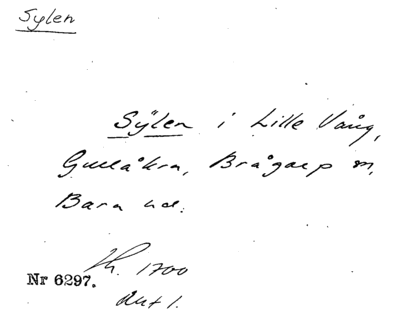 Sylen
Sÿlen i Lille Vång,
Gullåkra, Brågarp sn,
Bara hd.
Lh. 1700
Nr 6297.
akt 1.